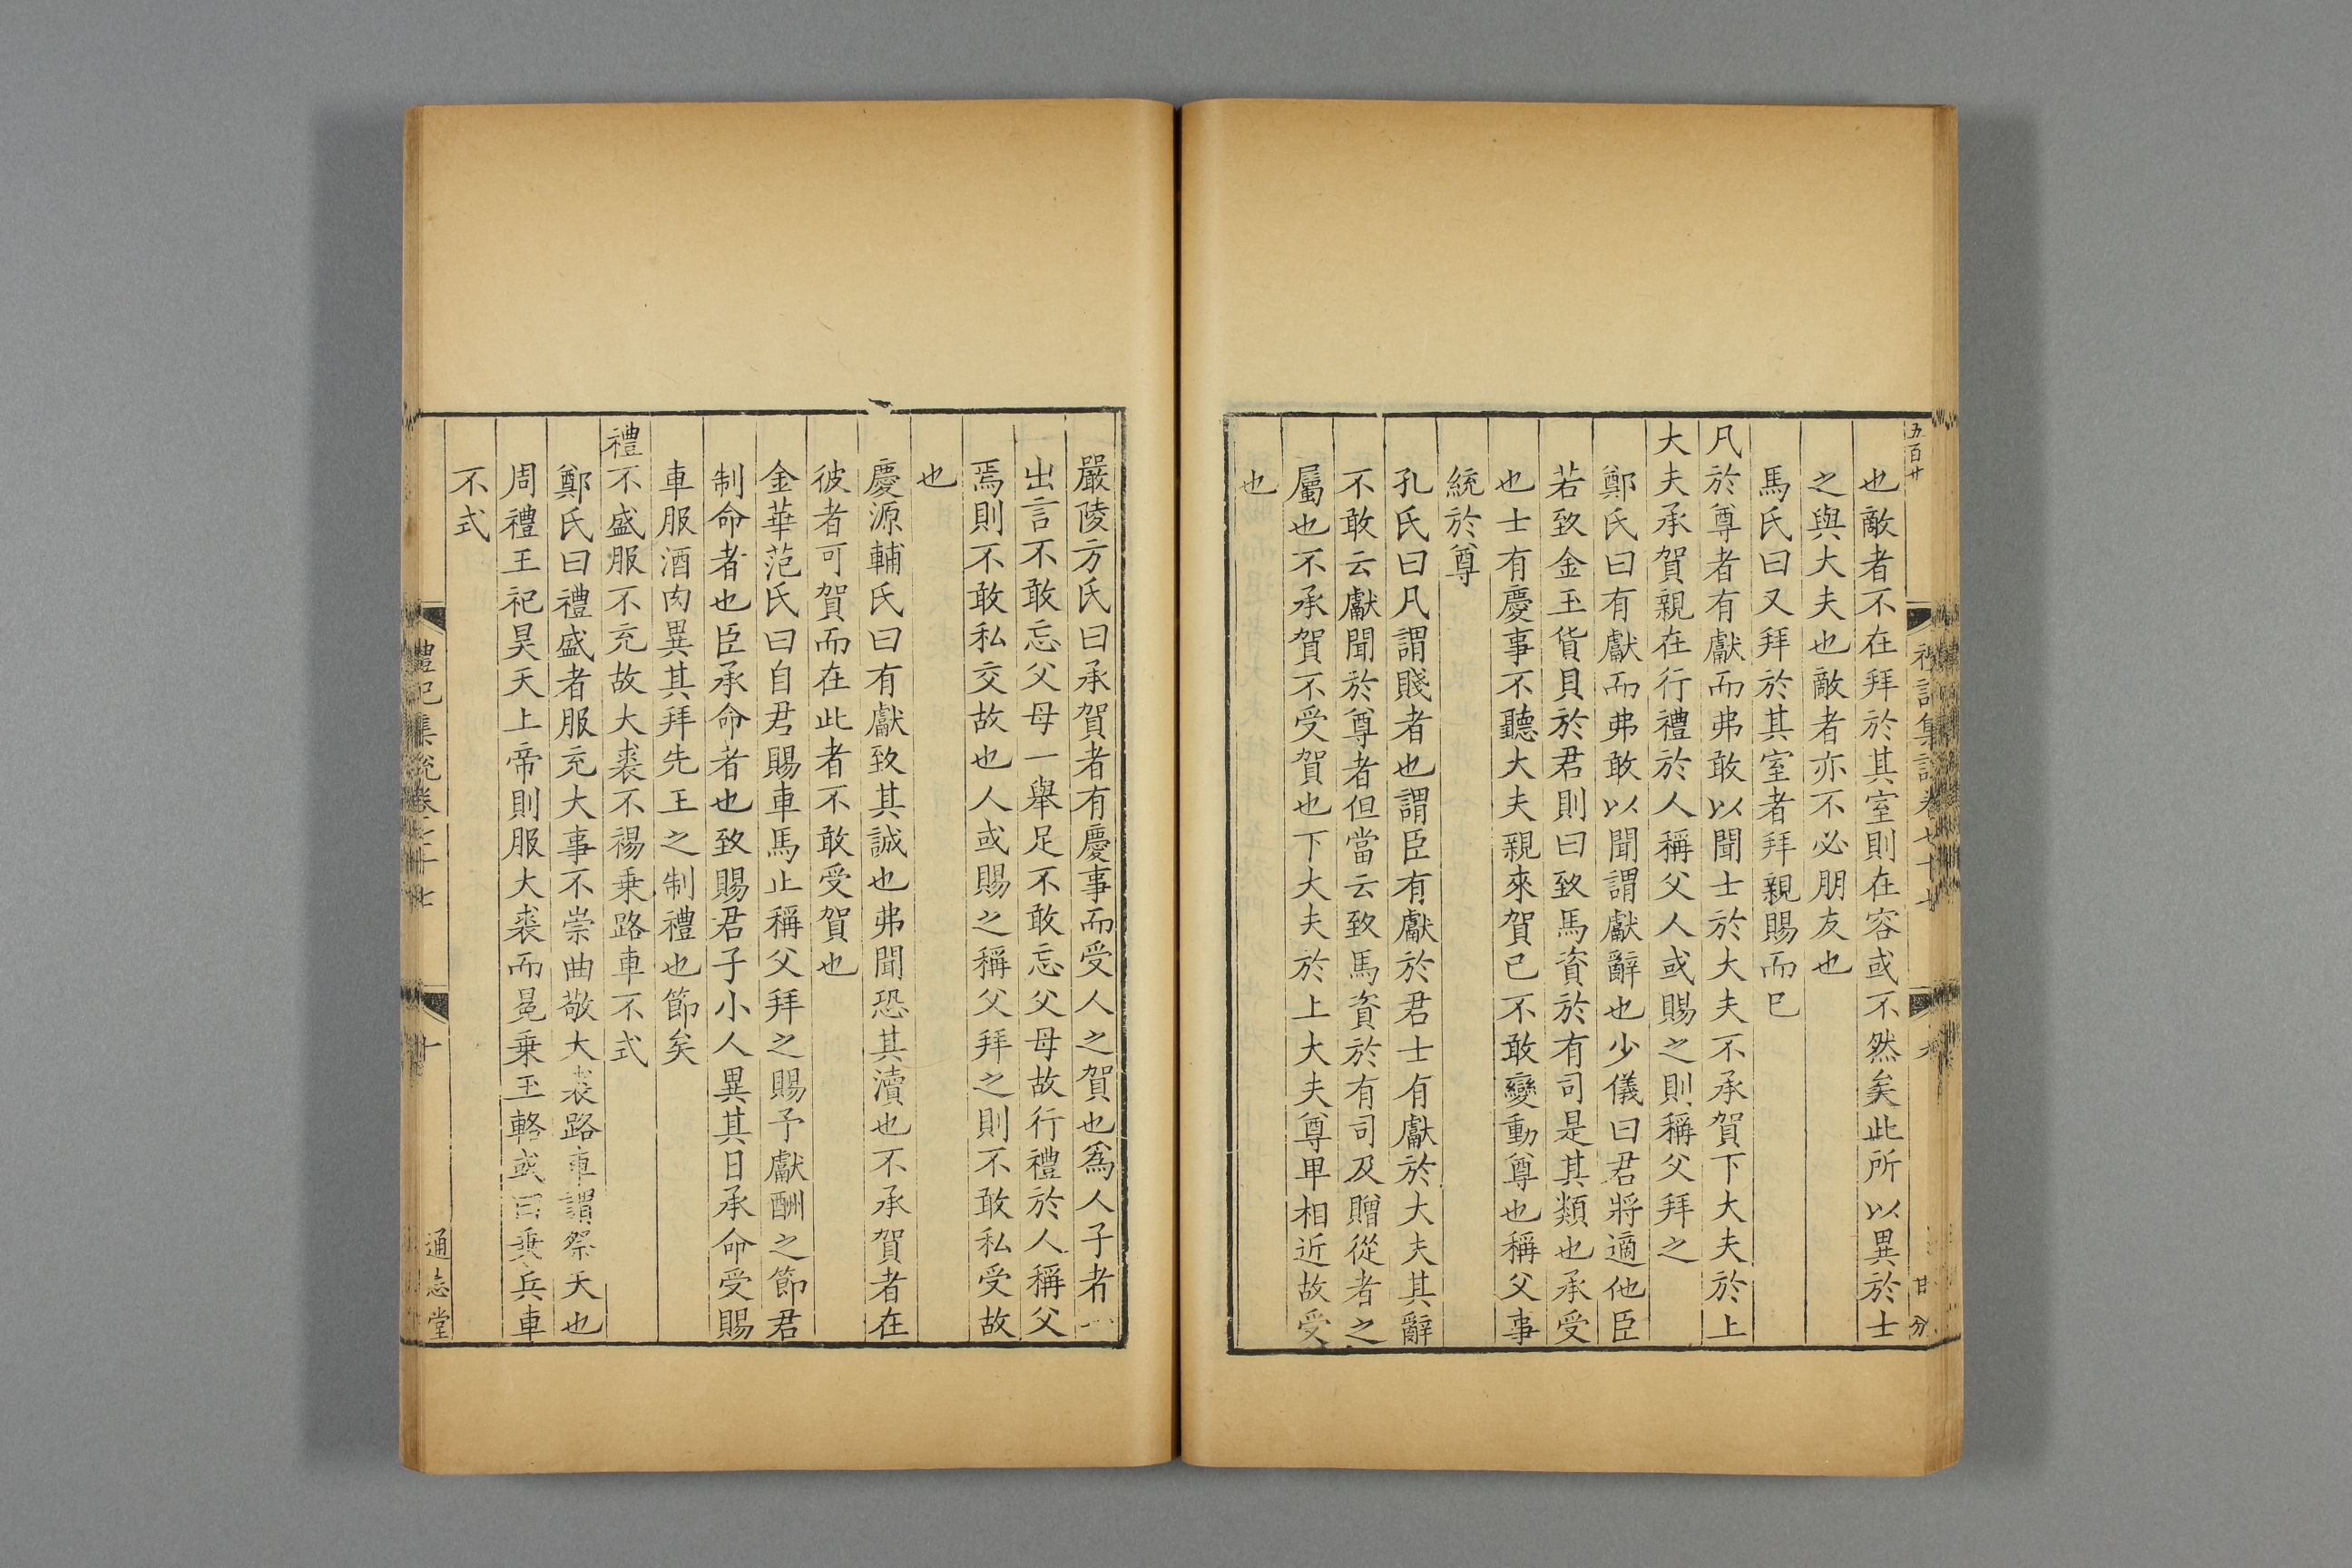 五百廿
也敵者不在拜於其室則在容或不然矣此所以異於士
之與大夫也敵者亦不必朋友也
馬氏曰又拜於其室者拜親賜而已
凡於尊者有獻而弗敢以聞士於大夫不承賀下大夫於上
大夫承賀親在行禮於人稱父人或賜之則稱父拜之
鄭氏曰有獻而弗敢以聞謂獻辭也少儀曰君將適他臣
若致金玉貨貝於君則曰致馬資於有司是其類也承受
也士有慶事不聽大夫親來賀已不敢變動尊也稱父事
統於尊
孔氏曰凡謂賤者也謂臣有獻於君士有獻於大夫其辭
不敢云獻聞於尊者但當云致馬資於有司及贈從者之
屬也不承賀不受賀也下大夫於上大夫尊卑相近故受
也
嚴陵方氏曰承賀者有慶事而受人之賀也爲人子者一
出言不敢忘父母一舉足不敢忘父母故行禮於人稱父
焉則不敢私交故也人或賜之稱父拜之則不敢私受故
也
慶源輔氏曰有獻致其誠也弗聞恐其瀆也不承賀者在
彼者可賀而在此者不敢受賀也
金華范氏曰自君賜車馬止稱父拜之賜予獻酬之節君
制命者也臣承命者也致賜君子小人異其日承命受賜
車服酒肉異其拜先王之制禮也節矣
禮不盛服不充故大裘不裼乗路車不式
鄭氏曰禮盛者服充大事不崇曲敬大裘路車謂祭天也
周禮王祀昊天上帝則服大裘而冕乗玉輅或曰乗兵車
不式
禮記集說卷七十七
十
通志堂